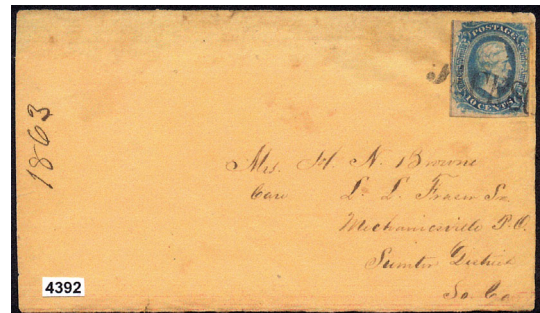 POSTAGE
10 CENTS
1863
Mrs. H. N. Browne
Care L. L. Fraser Sr.
Mechanicsville P.O.
Sumter District
So. Ca.
4392